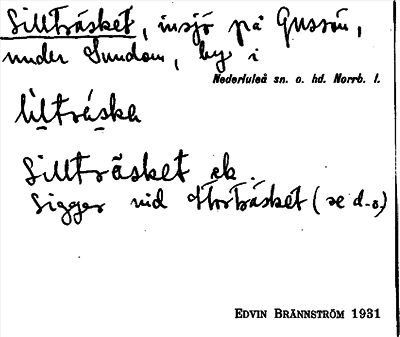 Lillträsket, insjö på Gussön,
under Sundom, by i
Nederluleå sn. o. hd. Norrb. l.
lìltráska
Lillträsket ek.
Ligger vid Storträsket (se d.o.)
EDVIN BRÄNNSTRÖM 1931